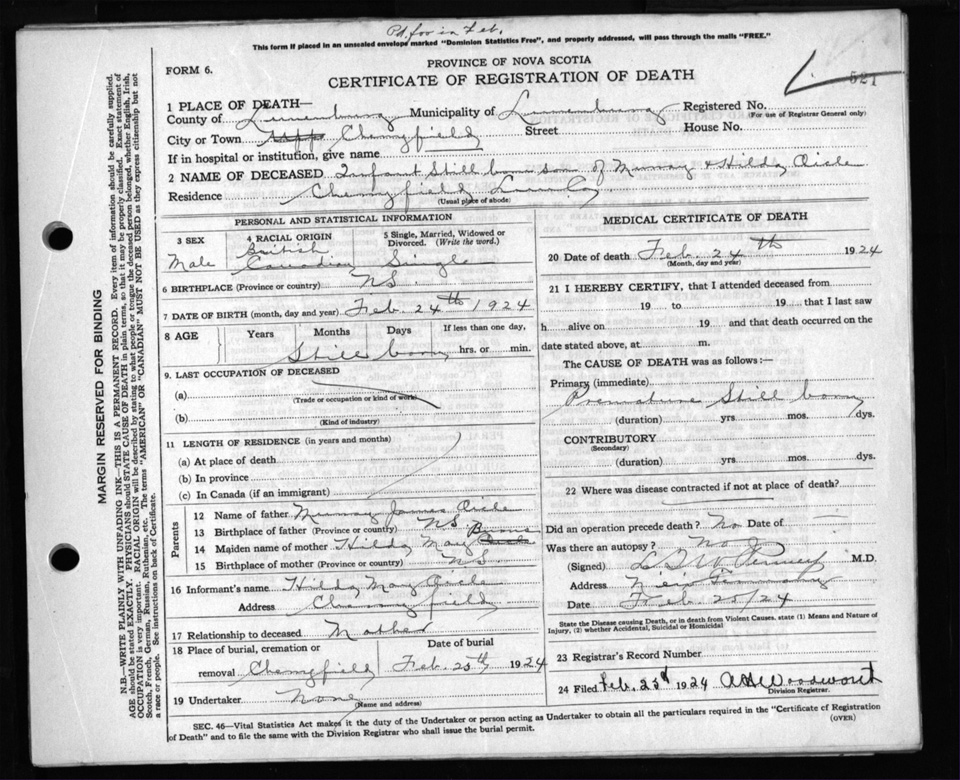 Pd. for in Feb.
This form if placed in an unsealed envelope marked "Dominion Statistics Free", and properly addressed, will pass through the mails "FREE."
PROVINCE OF NOVA SCOTIA
FORM 6.
CERTIFICATE OF REGISTRATION OF DEATH
521
1 PLACE OF DEATH—
County of Lunenburg Municipality of Lunenburg Registered No.
(For use of Registrar General only)
City or Town Cherryfield Street House No.
If in hospital or institution, give name
2 NAME OF DECEASED Infant Still born son of Murray & Hilda Oicle
Residence Cherryfield Lun. Co.
(Usual place of abode)
PERSONAL AND STATISTICAL INFORMATION
3 SEX
Male
4 RACIAL ORIGIN
British
Canadian
5 Single, Married, Widowed or Divorced. (Write the word.)
Single
6 BIRTHPLACE (Province or country) NS.
7 DATE OF BIRTH (month, day and year) Feb. 24th 1924
8 AGE Years Months Days If less than one day,
Still born hrs. or min.
9. LAST OCCUPATION OF DECEASED
(a)
(Trade or occupation or kind of work)
(b)
(Kind of industry)
11 LENGTH OF RESIDENCE (in years and months)
(a) At place of death
(b) In province
(c) In Canada (if an immigrant)
Parents
12 Name of father Murray James Oicle
13 Birthplace of father (Province or country) NS.
14 Maiden name of mother Hilda May
15 Birthplace of mother (Province or country) NS.
16 Informant's name Hilda May Oicle
Address Cherryfield
17 Relationship to deceased Mother
18 Place of burial, cremation or Date of burial
removal Cherryfield Feb. 25th 1924
19 Undertaker None
(Name and address)
MEDICAL CERTIFICATE OF DEATH
20 Date of death Feb. 24th 1924
(Month, day and year)
21 I HEREBY CERTIFY, that I attended deceased from
19 to 19 that I last saw
h alive on 19 and that death occurred on the
date stated above, at m.
The CAUSE OF DEATH was as follows:—
Primary (immediate)
Premature Still born
(duration) yrs. mos. dys.
CONTRIBUTORY
(Secondary)
(duration) yrs. mos. dys.
22 Where was disease contracted if not at place of death?
Did an operation precede death? No Date of
Was there an autopsy? No
(Signed) Penney M.D.
Address New Germany
Date Feb. 25/24
State the Disease causing Death, or in death from Violent Causes, state (1) Means and Nature of
Injury, (2) whether Accidental, Suicidal or Homicidal
23 Registrar's Record Number
24 Filed Feb. 25 1924 Woodworth
Division Registrar.
SEC. 46—Vital Statistics Act makes it the duty of the Undertaker or person acting as Undertaker to obtain all the particulars required in the "Certificate of Registration
of Death" and to file the same with the Division Registrar who shall issue the burial permit.
(OVER)
MARGIN RESERVED FOR BINDING
N.B.—WRITE PLAINLY WITH UNFADING INK—THIS IS A PERMANENT RECORD. Every item of information should be carefully supplied.
AGE should be stated EXACTLY. PHYSICIANS should STATE CAUSE OF DEATH in plain terms, so that it may be properly classified. Exact statement of
OCCUPATION is very important. RACIAL ORIGIN will be described by stating to what people or tongue the deceased person belonged, whether English, Irish,
Scotch, French, German, Russian, Ruthenian, etc. The terms "AMERICAN" OR "CANADIAN" MUST NOT BE USED as they express citizenship but not
a race or people. See instructions on back of Certificate.